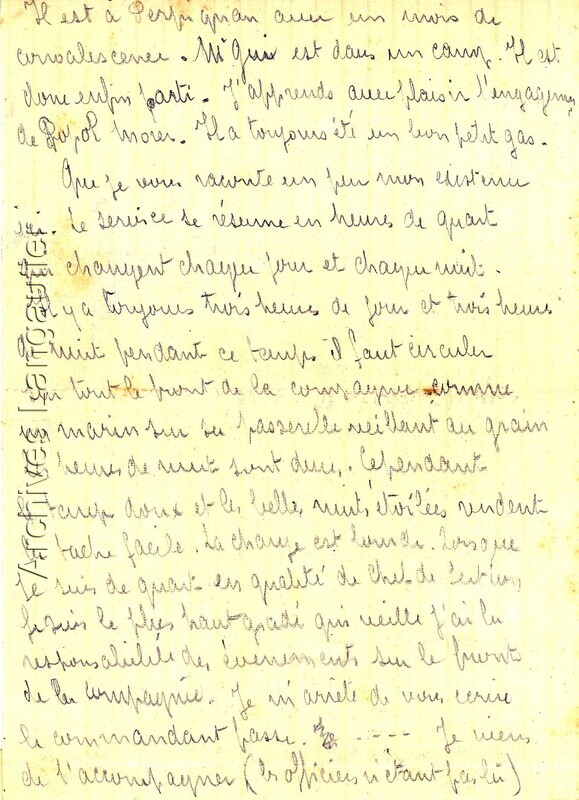 Il est à Perpignan avec un mois de
convalescence. Mr Guix est dans un camp. Il est
donc enfin parti. J'apprends avec plaisir l'engagem
de Popol Morer. Il a toujours été un bon petit gas.
Que je vous raconte un peu mon existence
ici. Le service se résume en heures de quart
changent chaque jour et chaque nuit.
y a toujours trois heures de jour et trois heures
nuit pendant ce temps il faut circuler
sur tout le front de la compagnie comme
marin sur sa passerelle veillant au grain
heures de nuit sont dures. Cependant
temps doux et les belles nuits étoilées rendent
tache facile. La charge est lourde. Lorsque
Je suis de quart en qualité de Chef de Section
Je suis le plus haut gradé qui veille j'ai la
responsabilité des évenements sur le front
de la compagnie. Je m'arrête de vous écrire
le commandant passe. ---- Je viens
de l'accompagner (les officiers n'étant pas là)
Archives Lalngautier